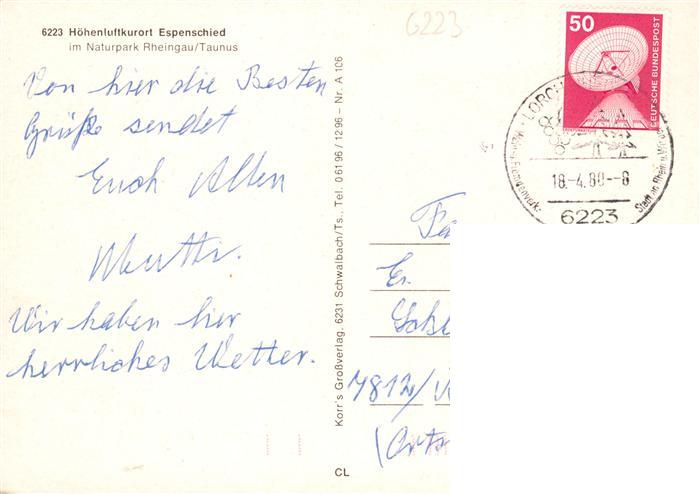 6223 Höhenluftkurort Espenschied
im Naturpark Rheingau/Taunus
Von hier die Besten
Grüße sendet
Euch Allen
Mutti.
Wir haben hier
herrliches Wetter.
Korr's Großverlag, 6231 Schwalbach/Ts., Tel. 06196/1296 - Nr. A 106
CL
6223
50
DEUTSCHE BUNDESPOST
LORCH
Stadt an Rhein u.
18.-4.80.--8
6223
Fa
Er.
7812/
(Orts